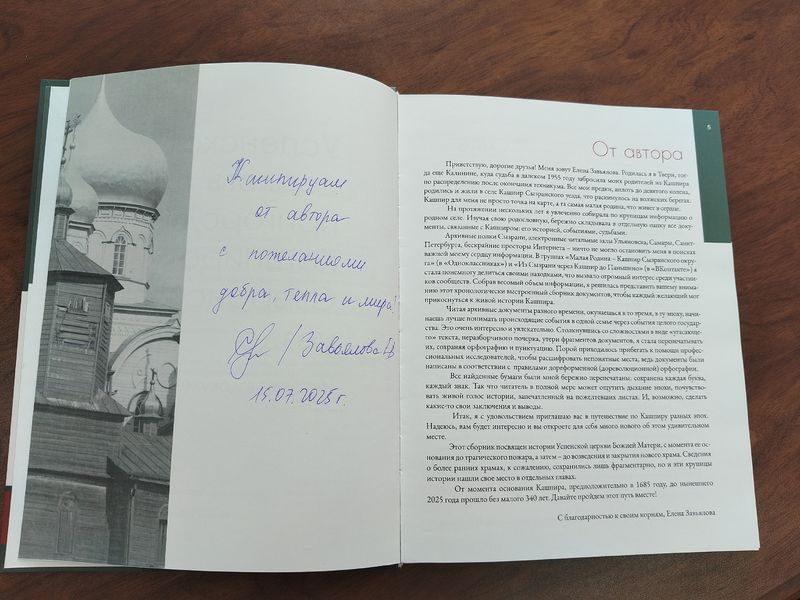 Кашпирцам
от автора
с пожеланиями
добра, тепла и мира!
/ Завьялова Е.В.
15.07.2025 г.
5
От автора
Приветствую, дорогие друзья! Меня зовут Елена Завьялова. Родилась я в Твери, тог-
да еще Калинине, куда судьба в далеком 1955 году забросила моих родителей из Кашпира
по распределению после окончания техникума. Все мои предки, вплоть до девятого колена,
родились и жили в селе Кашпир Сызранского уезда, что раскинулось на волжских берегах.
Кашпир для меня не просто точка на карте, а та самая малая родина, что живет в сердце.
На протяжении нескольких лет я увлеченно собирала по крупицам информацию о
родном селе. Изучая свою родословную, бережно складывала в отдельную папку все доку-
менты, связанные с Кашпиром: его историей, событиями, судьбами.
Архивные полки Сызрани, электронные читальные залы Ульяновска, Самары, Санкт-
Петербурга, бескрайние просторы Интернета – ничто не могло остановить меня в поисках
важной моему сердцу информации. В группах «Малая Родина – Кашпир Сызранского окру-
га» (в «Одноклассниках») и «Из Сызрани через Кашпир до Паньшино» (в «ВКонтакте») я
стала понемногу делиться своими находками, что вызвало огромный интерес среди участни-
ков сообществ. Собрав весомый объем информации, я решилась представить вашему внима-
нию этот хронологически выстроенный сборник документов, чтобы каждый желающий мог
прикоснуться к живой истории Кашпира.
Читая архивные документы разного времени, окунаешься в то время, в ту эпоху, начи-
наешь лучше понимать происходящие события в одной семье через события целого государ-
ства. Это очень интересно и увлекательно. Столкнувшись со сложностями в виде «угасающе-
го» текста, неразборчивого почерка, утери фрагментов документов, я стала перепечатывать
их, сохраняя орфографию и пунктуацию. Порой приходилось прибегать к помощи профес-
сиональных исследователей, чтобы расшифровать непонятные места, ведь документы были
написаны в соответствии с правилами дореформенной (дореволюционной) орфографии.
Все найденные бумаги были мной бережно перепечатаны: сохранена каждая буква,
каждый знак. Так что читатель в полной мере может ощутить дыхание эпохи, почувство-
вать живой голос истории, запечатленный на пожелтевших листах. И, возможно, сделать
какие-то свои заключения и выводы.
Итак, я с удовольствием приглашаю вас в путешествие по Кашпиру разных эпох.
Надеюсь, вам будет интересно и вы откроете для себя много нового об этом удивительном
месте.
Этот сборник посвящен истории Успенской церкви Божией Матери, с момента ее ос-
нования до трагического пожара, а затем – до возведения и закрытия нового храма. Сведения
о более ранних храмах, к сожалению, сохранились лишь фрагментарно, но и эти крупицы
истории нашли свое место в отдельных главах.
От момента основания Кашпира, предположительно в 1685 году, до нынешнего
2025 года прошло без малого 340 лет. Давайте пройдем этот путь вместе!
С благодарностью к своим корням, Елена Завьялова